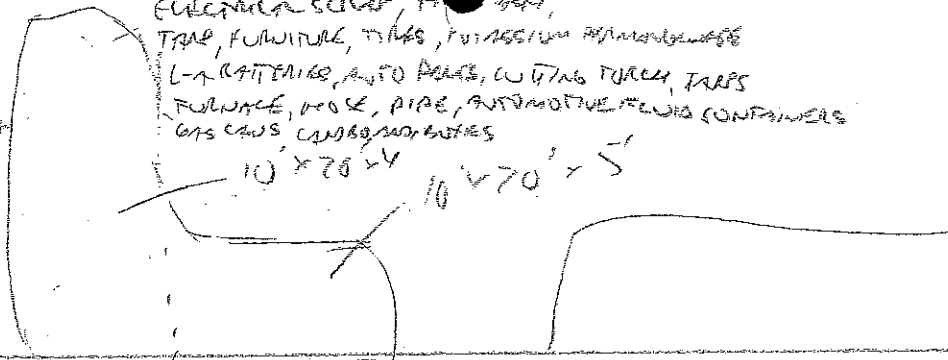 ELECTRICAL SCRAP,
TARP, FURNITURE, TIRES, POTASSIUM PERMANGANATE
L-A BATTERIES, AUTO PARTS, CUTTING TORCH, TARPS
FURNACE, HOSE, PIPE, AUTOMOTIVE FLUID CONTAINERS
GAS CANS CARDBOARD BOXES
10' x 70' x 4
10' x 70' x 5'